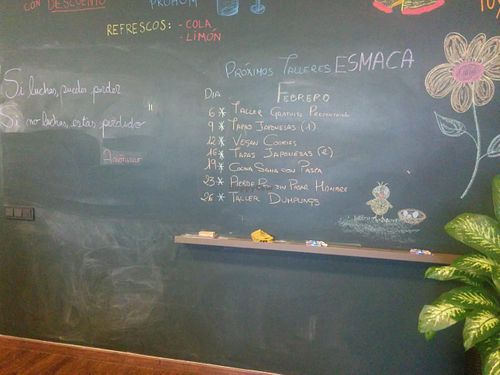 CON DESCUENTO
REFRESCOS: - COLA
- LIMÓN
Si luchas, puedes perder
Si no luchas, estas perdido
Anónimo
PRÓXIMOS TALLERES ESMACA
DIA
FEBRERO
6 * TALLER GRATUITO
9 * TAPAS JAPONESAS (1)
12 * VEGAN COOKIES
16 * TAPAS JAPONESAS (2)
19 * COCINA SANA CON PASTA
23 * PIERDE PESO SIN PASAR HAMBRE
26 * TALLER DUMPLINGS